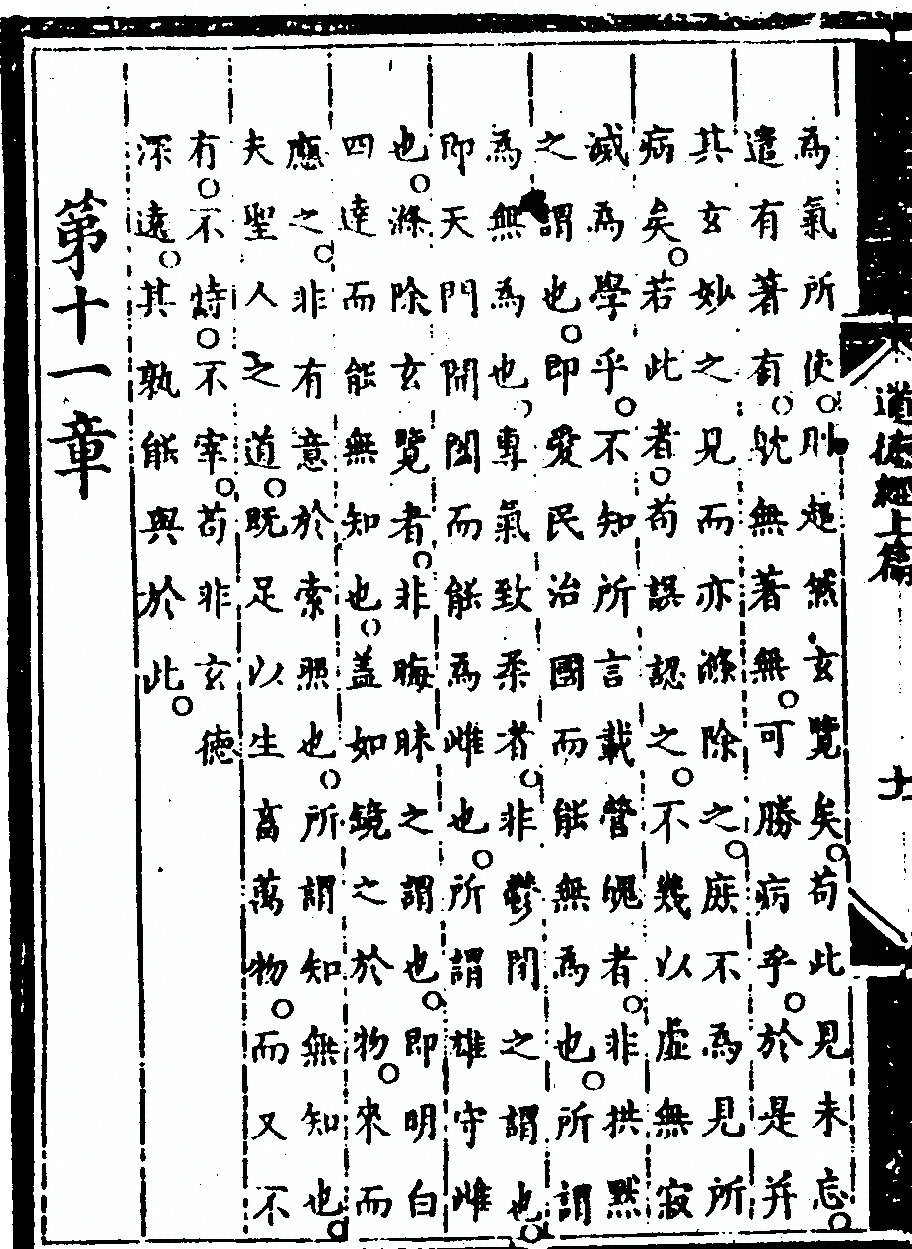 道德經上篇
十一
為氣所使。則超然玄覽矣。苟此見未忘。
遣有著有。躭無著無。可勝病乎。於是并
其玄妙之見而亦滌除之。庶不為見所
病矣。若此者。苟誤認之。不幾以虛無寂
滅為學乎。不知所言載營魄者。非拱默
之謂也。即愛民治國而能無為也。所謂
為無為也。專氣致柔者。非鬱閉之謂也。
即天門開闔而能為雌也。所謂雄守雌
也。滌除玄覽者。非晦昧之謂也。即明白
四達而能無知也。蓋如鏡之於物。來而
應之。非有意於索照也。所謂知無知也。
夫聖人之道。既足以生畜萬物。而又不
有。不恃。不宰。苟非玄德
深遠。其孰能與於此。
第十一章